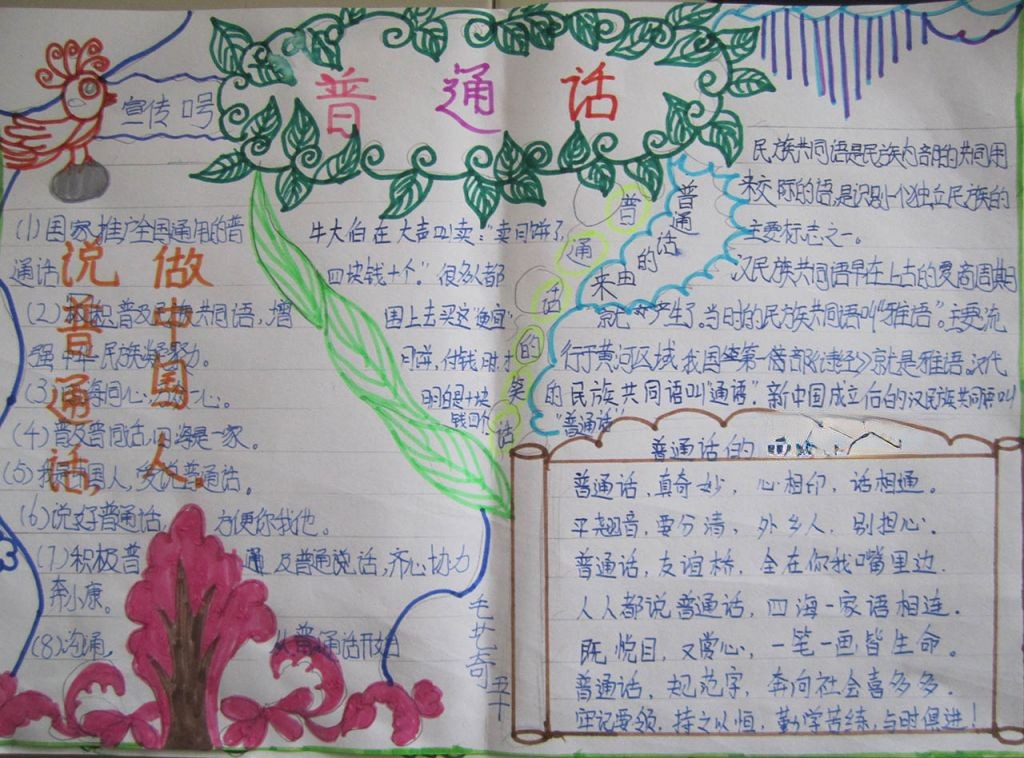 普通话
宣传口号
(1)国家推广全国通用的普
通话
(2)积极普及民族共同语,增
强中华民族凝聚力。
(3)海同心
(4)普及普同话,四海是一家。
(5)我是中国人,爱说普通话。
(6)说好普通话,方便你我他。
(7)积极普通及普通说话,齐心协力
奔小康。
(8)沟通,从普通话开始
做中国人
说普通话,
牛大伯在大声叫卖:"卖月饼了,
四块钱十个"。很多人都
围上去买这"便宜"
月饼,付钱时才
明白是十块
钱四个
普通话的笑话
普通话的由来
民族共同语是民族内部的共同用
来交际的语,是识别一个独立民族的
主要标志之一。
汉民族共同语早在上古的夏商周典
就产生了,当时的民族共同语叫"雅语"。主要流
行于黄河区域,我国第一偖部《诗经》就是雅语,汉代
的民族共同语叫"通语",新中国成立后的汉民族共同语叫
"普通话"
普通话的
普通话,真奇妙,心相印,话相通。
平翘音,要分清,外乡人,别担心。
普通话,友谊桥,全在你我嘴里边.
人人都说普通话,四海一家语相连.
既悦目,又赏心,一笔一画皆生命。
普通话,规范字,奔向社会喜多多.
牢记要领,持之以恒,勤学苦练,与时俱进!